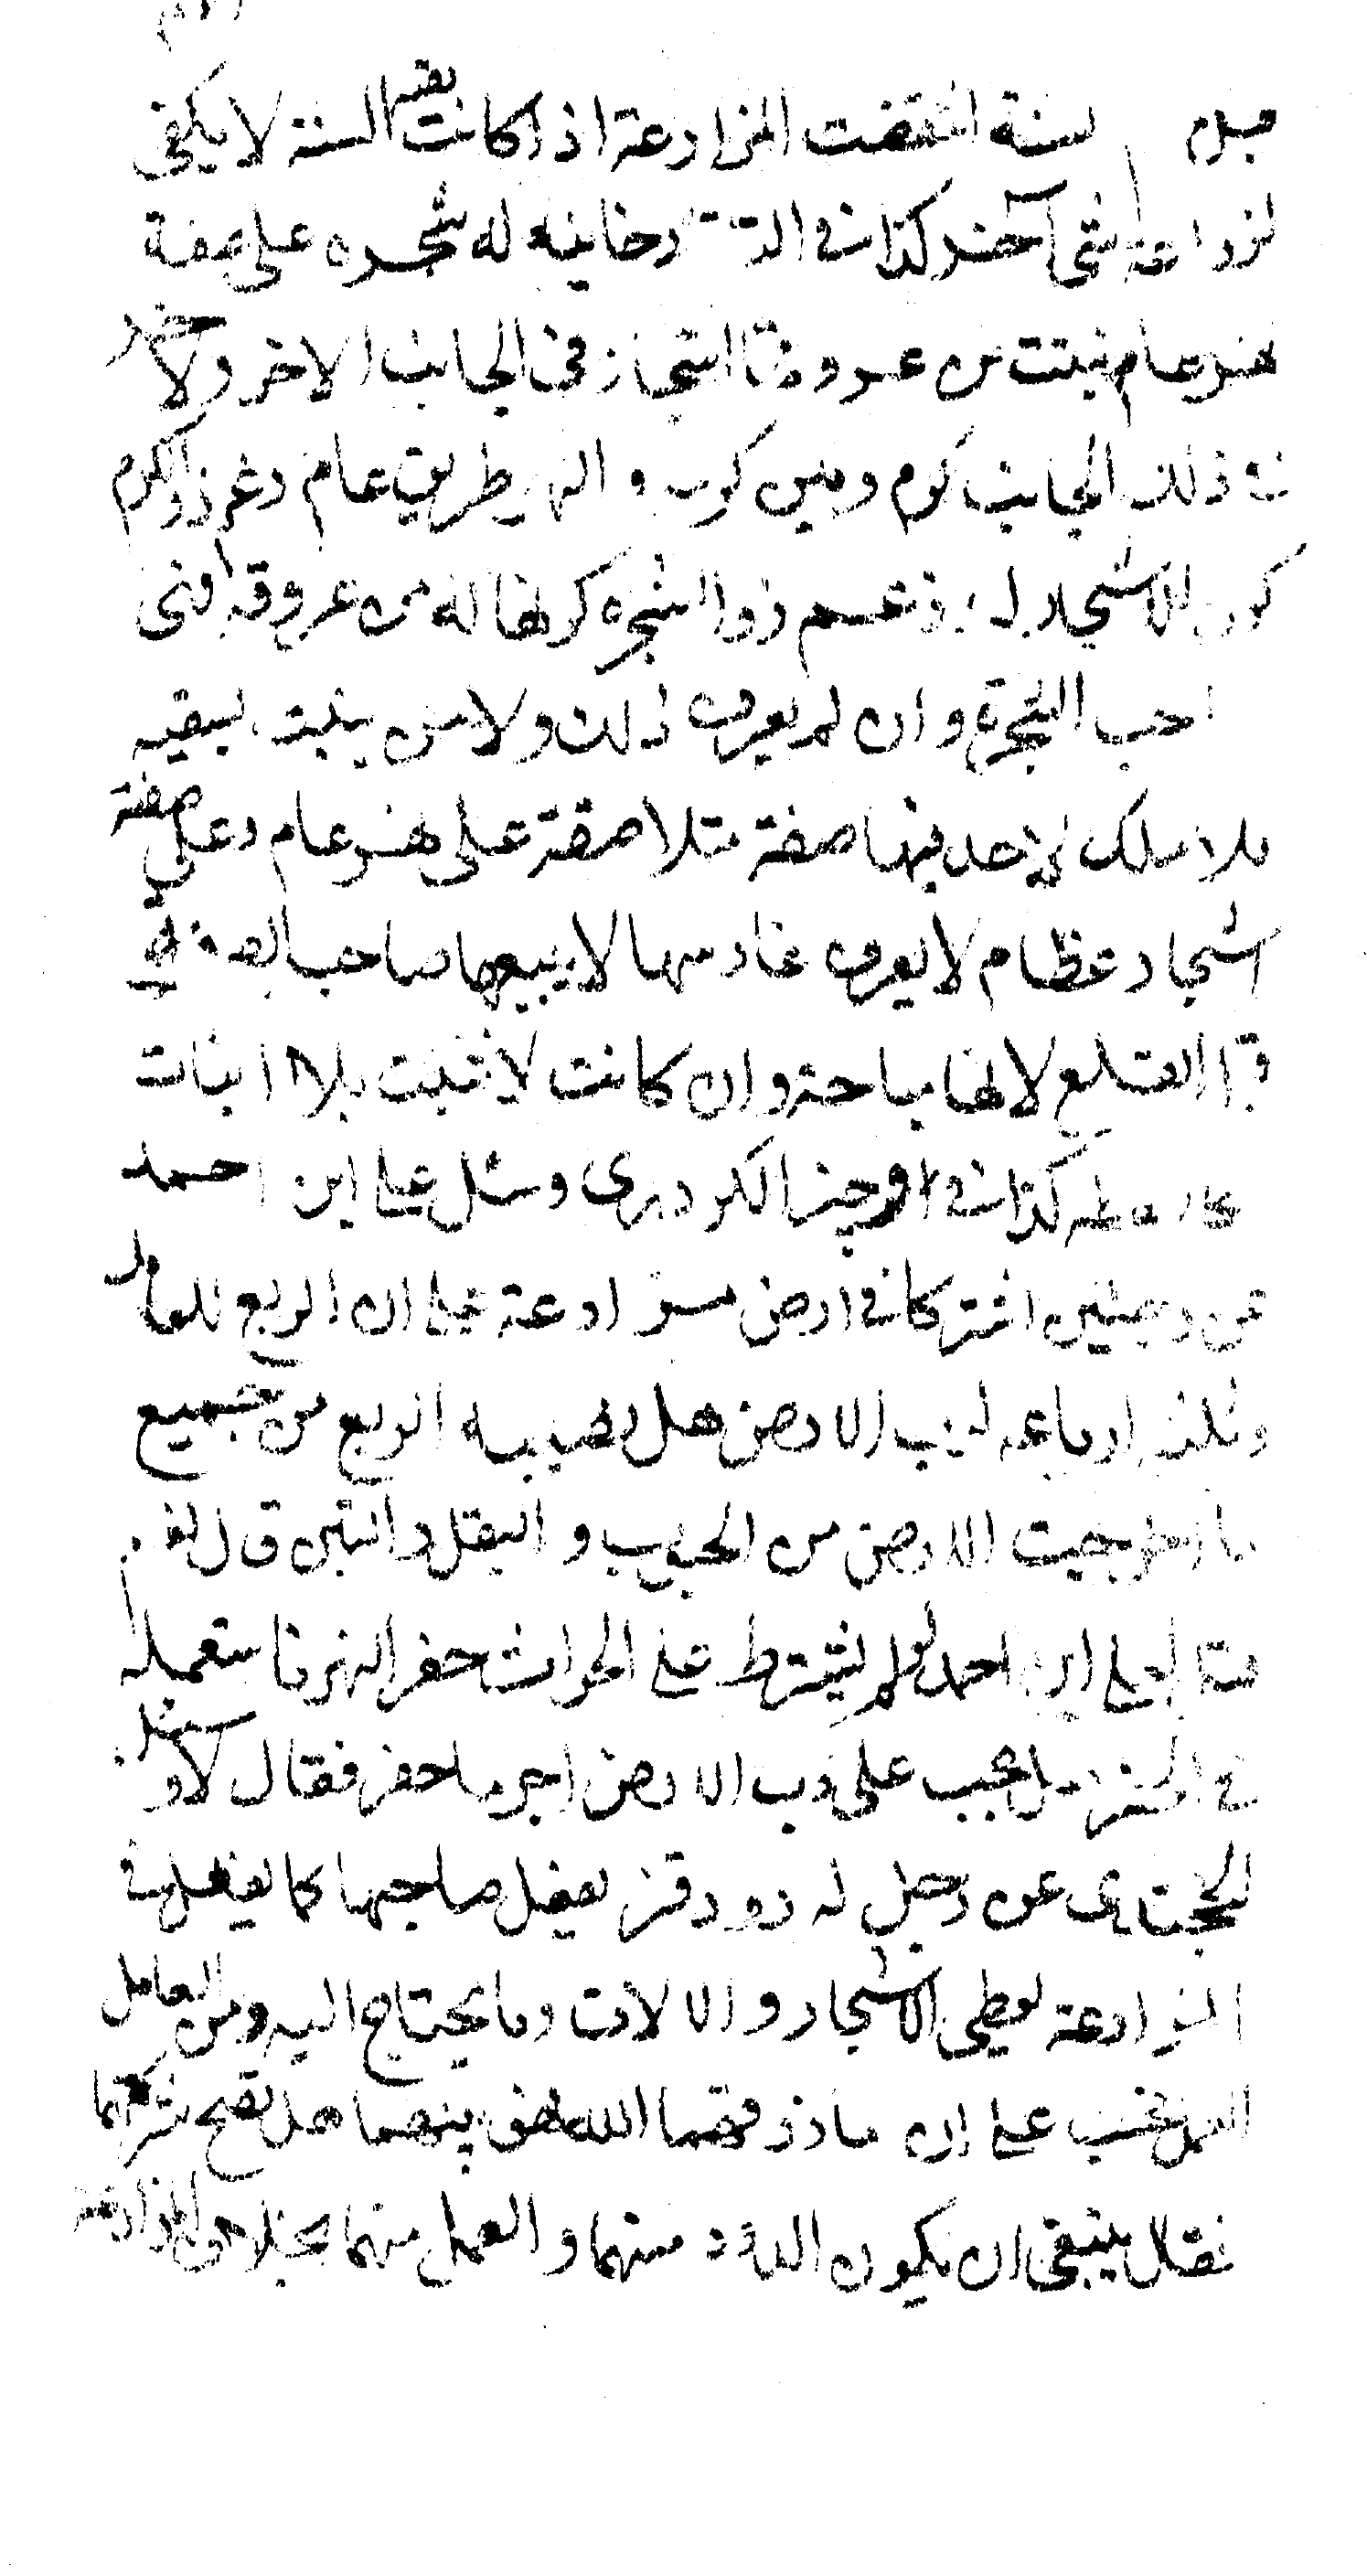 سنة انتقضت المزارعة اذا كانت بقية السنة لا يكفى
لزراعة شئ آخر كذا فى التتارخانيه له شجره على صفة
نهر عام نبتت من عروقها اشجار فى الجانب الاخر ولاخر
فى ذلك الجانب كرم وبين كرمه والنهر طريق عام وغرذو الكرم
كون الاشجار له وزعم ذو الشجره كونها له من عروقه افتى
احب الشجرة وان لم يعرف ذلك ولا من ينبت بسقيه
ملا ملك لاحد فيها صفة متلاصقة على نهر عام وعلى صفة
اشجار عظام لا يعرف غارسها لا يبيعها صاحب الصفة
قبل القلع لانها مباحة وان كانت لا تنبت بلا انبات
كذا فى الوجيز الكردرى وسئل على ابن احمد
عن رجلين اشتركا فى ارض مزارعة على ان الربع للعامل
وثلثة ارباعه لرب الارض هل نصيبه الربع من جميع
ما اخرجت الارض من الحبوب والبقل والتبن قال نعم
على ابن احمد لو لم يشترط على الحراث حفر النهر فاستعمله
فى الحفر هل يجب على رب الارض اجر ما حفر فقال لا وسئل
الخجندى عن رجل له دود قز يفعل صاحبها كما يفعل فى
المزارعة يعطى الاشجار والالات وما يحتاج اليه ومن العامل
العمل فحسب على ان ما رزقهما الله فهو بينهما هل تصح شركتهما
فقال ينبغى ان يكون الدود منهما والعمل منهما بخلاف المزارعة